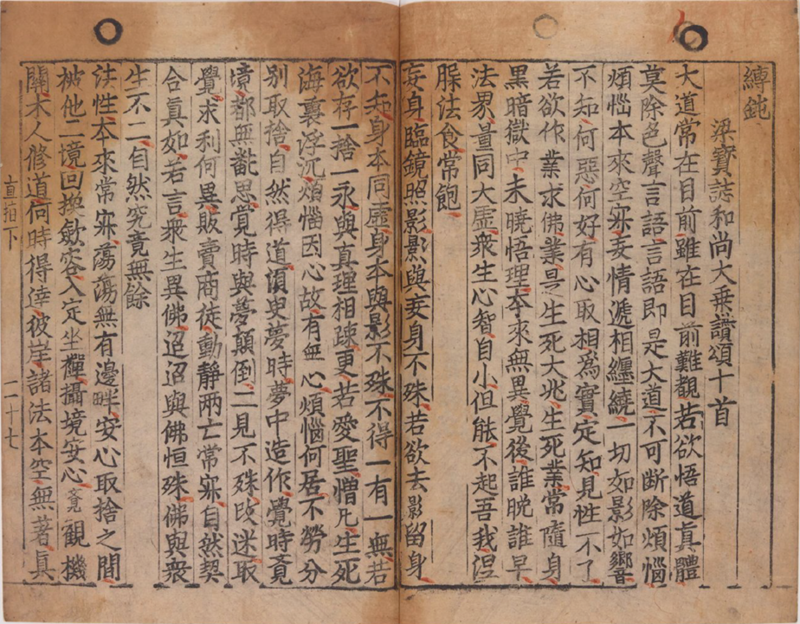 縛鈍
梁寶誌和尚大乘讚頌十首
大道常在目前雖在目前難覩若欲悟道真體
莫除色聲言語言語即是大道不可斷除煩惱
煩惱本來空寂妄情遞相纏繞一切如影如響
不知何惡何好有心取相為實定知見性不了
若欲作業求佛業是生死大兆生死業常隨身
黑暗獄中未曉悟理本來無異覺後誰晚誰早
法界量同大虛衆生心智自小但能不起吾我涅
法食常飽
妄身臨鏡照影影與妄身不殊若欲去影留身
不知身本同虛身本與影不殊不得一有一無若
欲存一捨一永與真理相疎更若愛聖憎凡生死
海裏浮沉煩惱因心故有無心煩惱何居不勞分
別取捨自然得道須臾夢時夢中造作覺時覺
境都無翻思覺時與夢顛倒二見不殊改迷取
覺求利何異販賣商徒動靜兩亡常寂自然契
合真如若言衆生異佛迢迢與佛恒殊佛與衆
生不二自然究竟無餘
法性本來常寂蕩蕩無有邊畔安心取捨之間
被他二境回換斂容入定坐禪攝境安心覺觀機
關木人修道何時得達彼岸諸法本空無著真
直指下 二十七